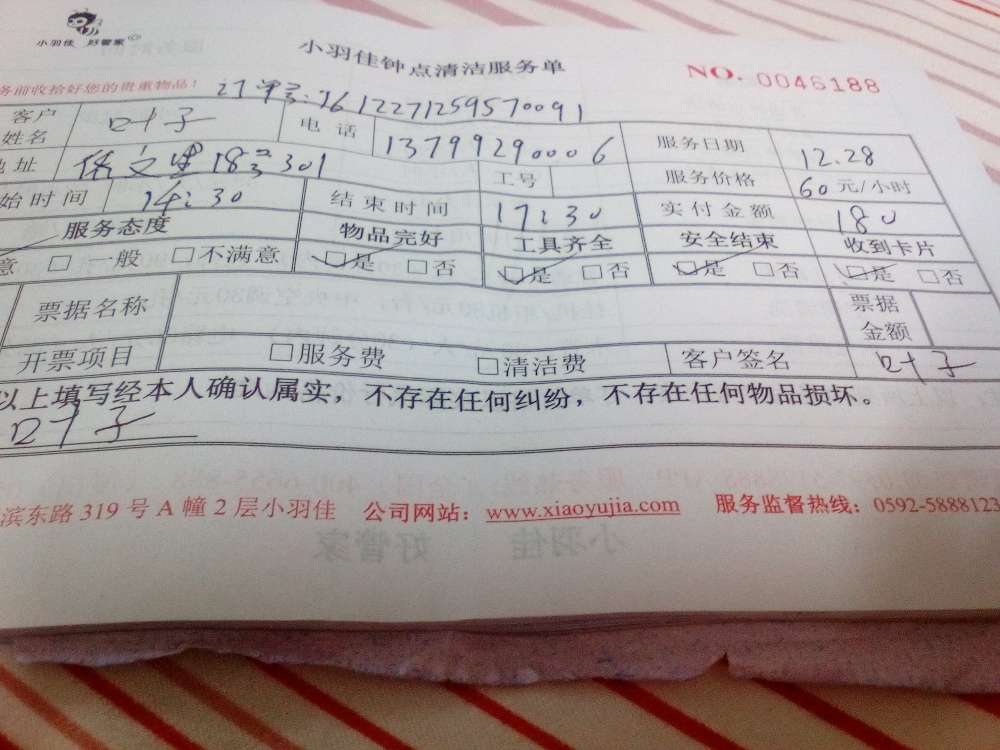 小羽佳 好管家
小羽佳钟点清洁服务单
NO. 0046188
务前收拾好您的贵重物品！
订单号:1612271259570091
客户姓名 叶子 电话 13799290006 服务日期 12.28
地址 文里18 301 工号 服务价格 60元/小时
始时间 14:30 结束时间 17:30 实付金额 180
服务态度 物品完好 工具齐全 安全结束 收到卡片
意 □一般 □不满意 □是 □否 □是 □否 □是 □否 □是 □否
票据名称 票据金额
开票项目 □服务费 □清洁费 客户签名 叶子
以上填写经本人确认属实，不存在任何纠纷，不存在任何物品损坏。
叶子
滨东路319号A幢2层小羽佳 公司网站：www.xiaoyujia.com 服务监督热线：0592-5888123